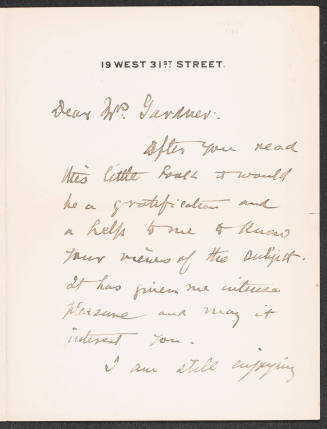 19 WEST 31ST STREET.
Dear Mrs. Gardner.
After you read
this little book it would
be a gratification and
a help to me to know
your views of the subject.
It has given me intense
pleasure and may it
interest you.
I am still enjoying